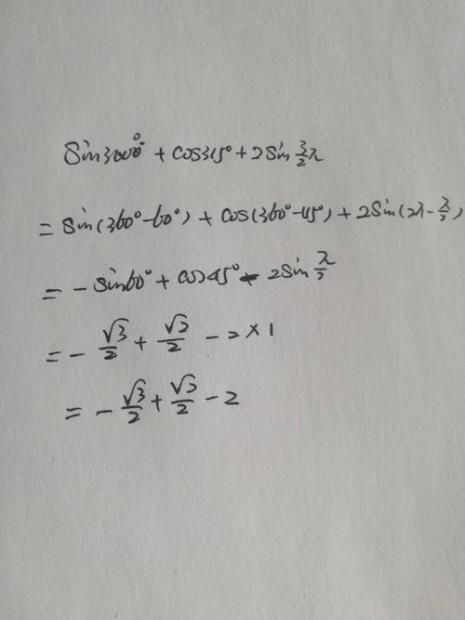 sin300° + cos315° + 2sin 3/2 π
= sin(360°-60°) + cos(360°-45°) + 2sin(2π - π/2)
= - sin60° + cos45° - 2sin π/2
= - √3/2 + √2/2 - 2×1
= - √3/2 + √2/2 - 2